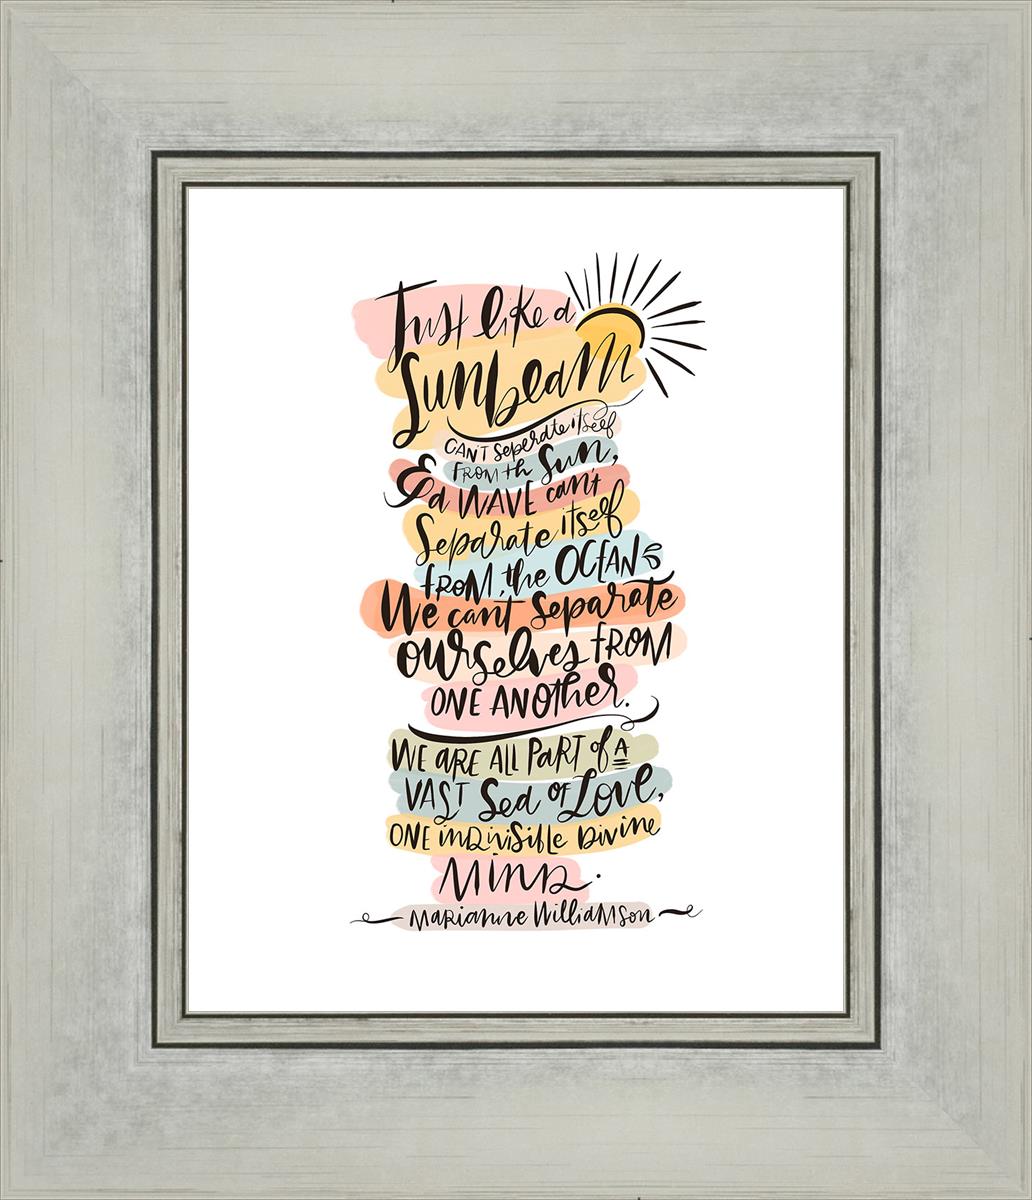 Just like a
Sunbeam
CAN'T Seperate itself
FROM th Sun,
& a WAVE can't
Separate itself
FROM the OCEAN
We can't Separate
ourselves FROM
ONE ANOther.
WE ARE ALL PART of A
VAST Sea OF Love,
ONE indivisible Divine
Mind.
Marianne Williamson